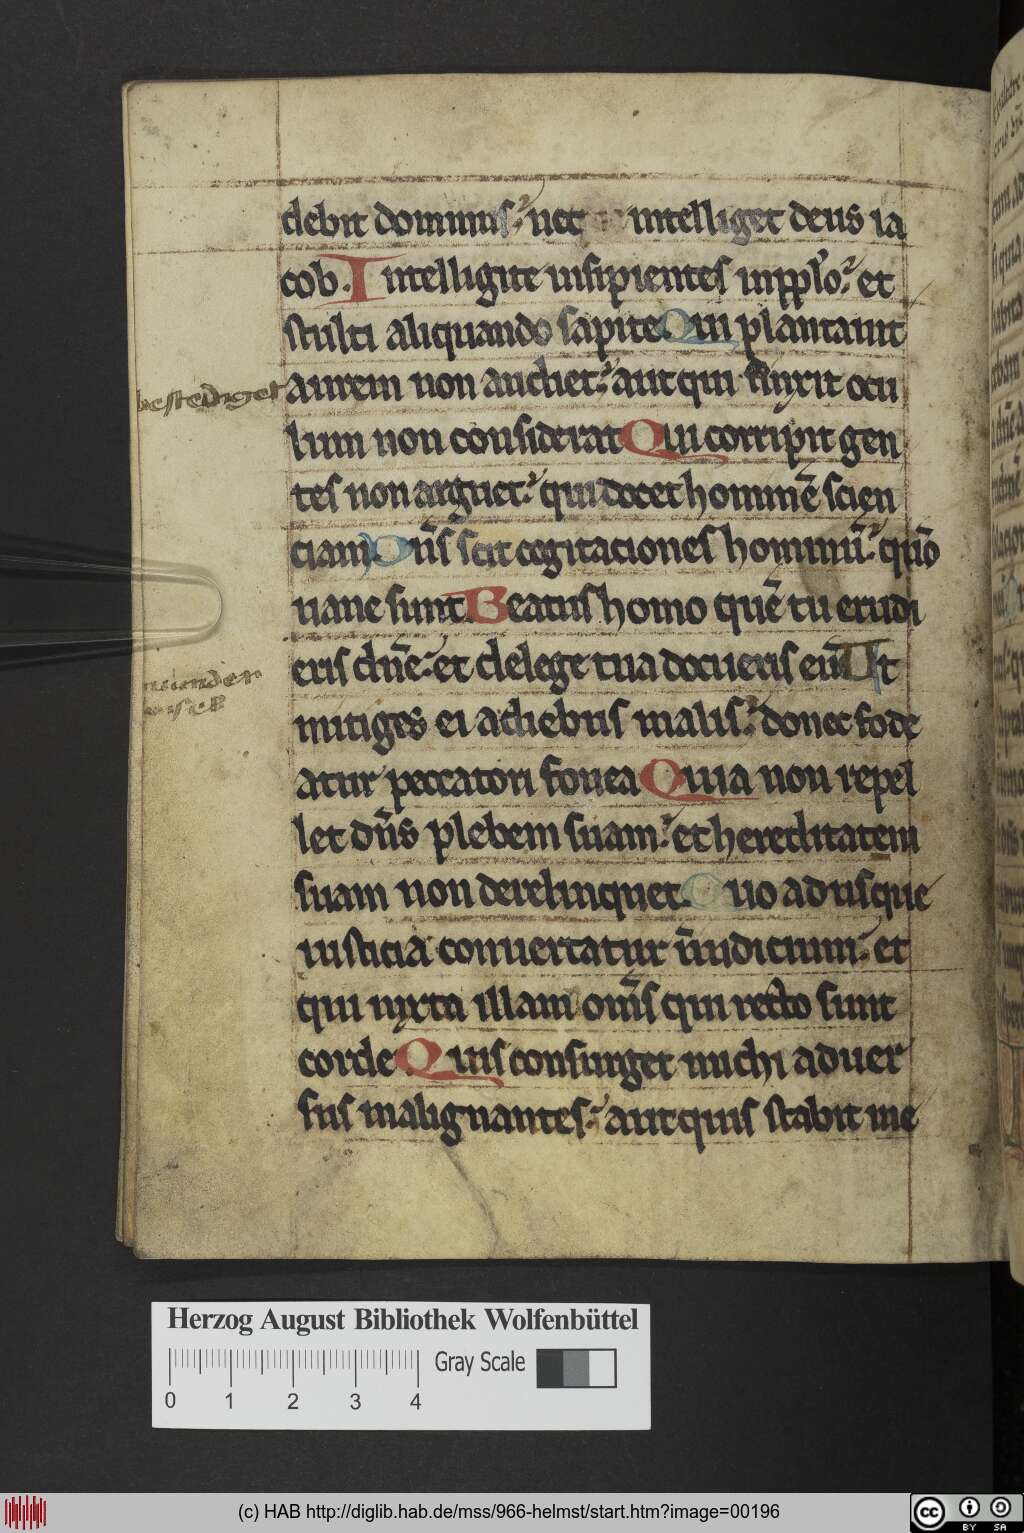 debit dominus. nec intelliget deus ia
cob. Intelligite insipientes in pplo. et
stulti aliquando sapite Qui plantauit
aurem non audiet. aut qui finxit ocu
lum non considerat Qui corripit gen
tes non arguet. qui docet hominē scien
ciam Dn̄s scit cogitaciones hominū. quō
uane sunt. Beatus homo quē tu erudi
eris dn̄e. et de lege tua docueris eū Ut
mitiges ei a diebus malis. donec fode
atur peccatori fouea Quia non repel
let dn̄s plebem suam. et hereditatem
suam non derelinquet. Quo adusque
iusticia conuertatur ī iudicium. et
qui iuxta illam om̄s qui recto sunt
corde Quis consurget michi aduer
sus malignantes. aut quis stabit me
Herzog August Bibliothek Wolfenbüttel
Gray Scale
0 1 2 3 4
(c) HAB http://diglib.hab.de/mss/966-helmst/start.htm?image=00196
cc BY SA